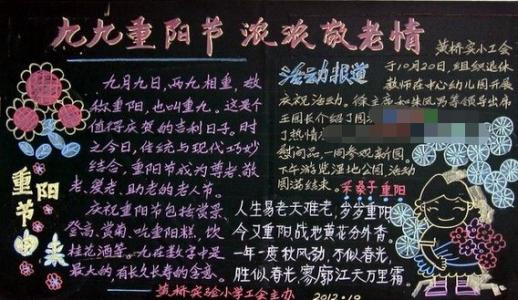 九九重阳节 浓浓敬老情
重阳节由来
九月九日，两九相重，故
称重阳，也叫重九。这是个
值得庆贺的吉利日子。时
之今日，传统与现代巧妙
结合，重阳节成为尊老、敬
老、爱老、助老的老人节。
庆祝重阳节包括赏景、
登高、赏菊、吃重阳糕、饮
桂花酒等。九在数字中是
最大的有长久长寿的含意。
活动报道
黄桥实小工会
于10月20日，组织退休
教师在中心幼儿园开展
庆祝活动。徐主席和朱凤男等领导出席
王园长介绍了园
了热情
慰问品，一同参观新园
下午游览湿地公园 活动
圆满结束。
采桑子 重阳
人生易老天难老，岁岁重阳
今又重阳战地黄花分外香。
一年一度秋风劲，不似春光，
胜似春光，寥廓江天万里霜
黄桥实验小学工会主办 2012.10